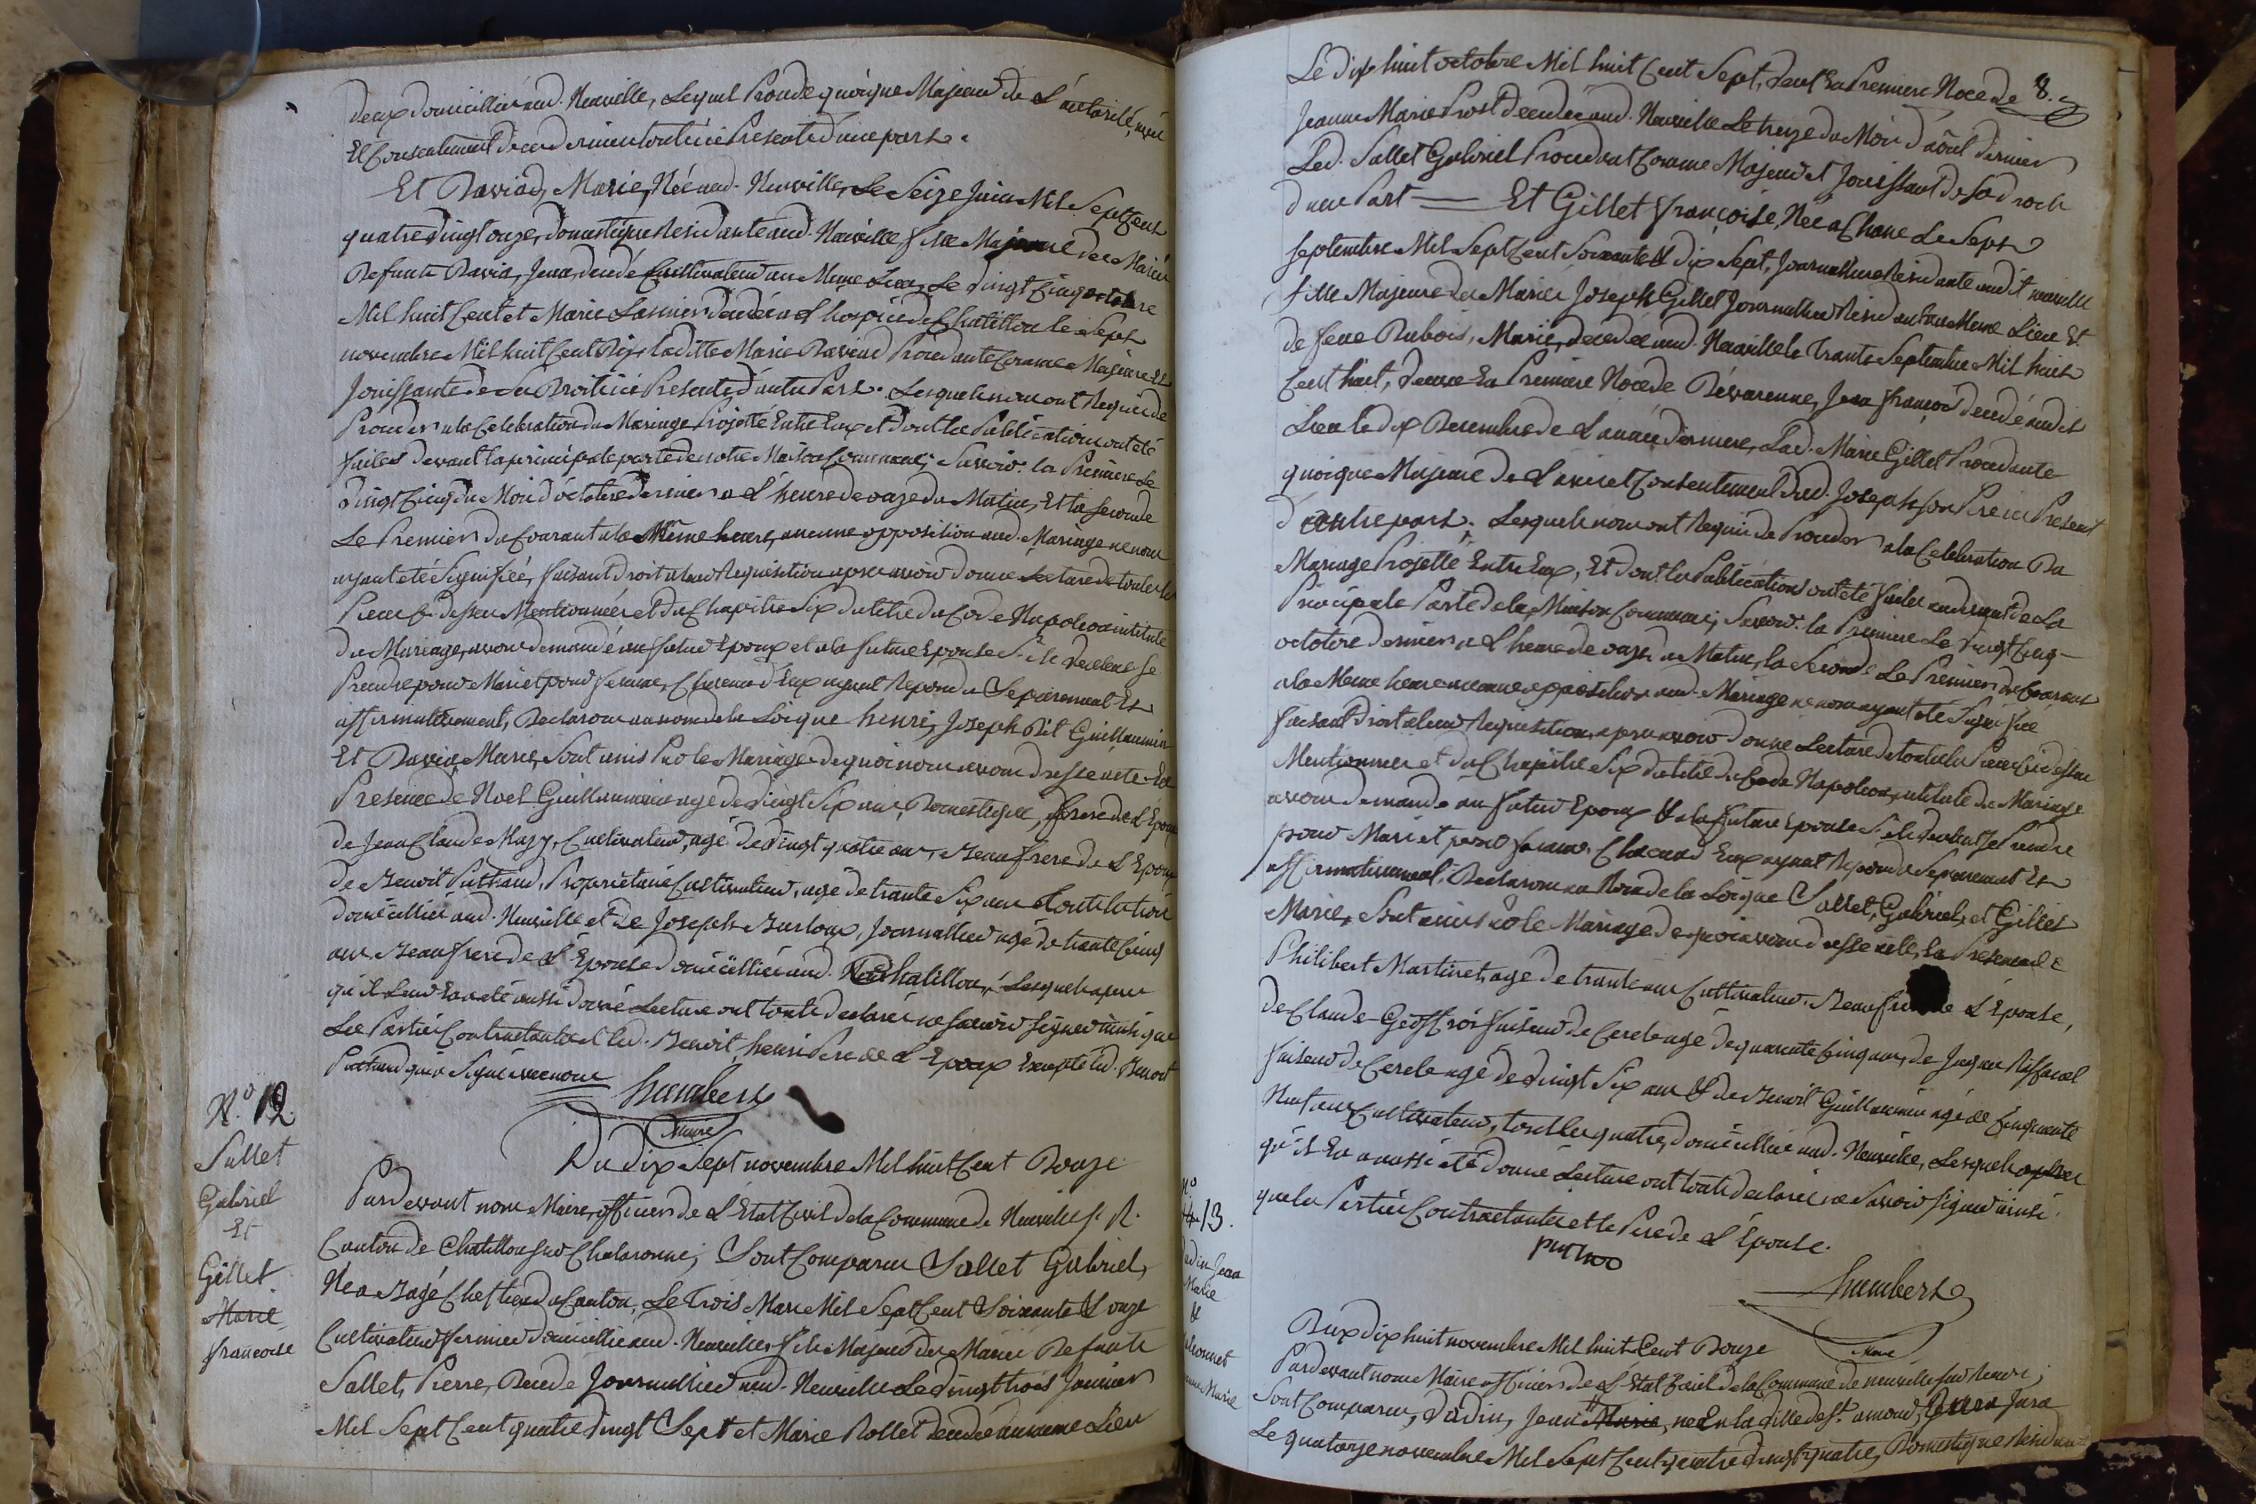 deux domiciliés aud. Neuville, Lequel Procède quoique Majeur de L'autorité, avis
Et Consentement de ce dernier tout ici Présents d'une part.
Et Daviad, Marie, Née aud. Neuville, Le Seize Juin Mil Sept Cent
quatre vingt onze, domestique Résidante aud. Neuville fille Majeure des Mariés
Defunts David, Jean, decedé Cultivateur au Meme Lieu, Le vingt Cinq octobre
Mil huit Cent et Marie Lannier decedée a L'hospice de Chatillon le Sept
novembre Mil huit Cent Dix, laditte Marie Daviad Procédante Comme Majeure Et
Jouissante de ses Droits ici Présente, d'autre Part. Lesquels nous ont Requis de
Proceder a la Celebration du Mariage Projetté Entre Eux et dont les Publications ont été
faites devant la principale porte de notre Maison Commune; Savoir. la Première Le
vingt Cinq du Mois d'octobre dernier a L'heure de onze du Matin, Et la Seconde
Le Premier du Courant a la Même heure, aucune opposition aud. Mariage ne nous
ayant été Signifiée, faisant droit a leur Requisition apres avoir donné Lecture de toutes les
Pieces Ci dessus Mentionnées et du Chapitre Six du titre du Code Napoléon intitulé
du Mariage, avons demandé au futur Epoux et a la future Epouse S'ils veulent se
Prendre pour Mari et pour femme, Chacun d'Eux ayant Repondu Séparément Et
affirmativement, Declarons au nom de la Loi que henri, Joseph Dit Guillaumin
Et David Marie, Sont unis Par le Mariage de quoi nous avons dressé acte En
Presence de Noel Guillaumin agé de vingt Six ans, Domestique, frere de L'Epoux
de Jean Claude Mazy, Cultivateur, agé de vingt quatre ans, Beau frere de L'Epoux
de Benoit Puthaud, Propriétaire Cultivateur, agé de trante Six ans Tous les trois
domiciliés aud. Neuville et de Joseph Burloux, Journallier agé de trante Cinq
ans Beau frere de L'Epouse domicillié aud. Chatillon, Lesquels apres
qu'il Leur En a été aussi donné Lecture ont touts declarés ne Savoir Signer ainsi que
Les Parties Contractantes et led. Benoit henri Pere de L'Epoux Excepté led. Benoit
Puthaud qui a Signé avec nous
humbert
Maire
N.º 12.
Sallet
Gabriel
Et
Gillet
Marie
francoise
Du dix Sept novembre Mil huit Cent Douze
Pardevant nous Maire, officier de L'Etat Civil de la Commune de Neuville s. R.
Canton de Chatillon Sur Chalaronne; Sont Comparu Sallet Gabriel,
Né a Bagé Chef Lieu du Canton, Le Trois Mars Mil Sept Cent Soixante & onze
Cultivateur fermier domicillié aud. Neuville, fils Majeur des Mariés Defunts
Sallet, Pierre, Decedé Journallier aud. Neuville Le vingt trois Janvier
Mil Sept Cent quatre vingt Sept et Marie Rollet decedée au meme Lieu
8.
Le dix huit octobre Mil huit Cent Sept, veuf En Premiere Noce de
Jeanne Marie Prost decedée aud. Neuville Le treize du Mois d'août dernier
Led. Sallet Gabriel Procedant Comme Majeur et Jouissant de Ses droits
d'une Part — Et Gillet françoise, Née a Chane Le Sept
Septembre Mil Sept Cent Soixante & dix Sept, Journalliere Residante audit neuville
fille Majeure des Mariés Joseph Gillet Journallier Residant au Meme Lieu Et
de feue Dubois, Marie, decedée aud. Neuville le Trante Septembre Mil huit
Cent huit, veuve En Premiere Noce de Dévarenne, Jean françois decedé audit
Lieu le dix Decembre de L'année derniere, Lad. Marie Gillet Procedante
quoique Majeure de L'avis et Consentement dud. Joseph son Pere ici Présent
d'autre part. Lesquels nous ont Requis de Proceder a la Celebration Du
Mariage Projetté Entre Eux, Et dont les Publications ont été faites au devant de La
Principale Porte de la Maison Commune; Savoir. la Premiere Le vingt Cinq
octobre dernier a L'heure de onze du Matin, la Seconde Le Premier du Courant
a la Meme heure aucune opposition aud. Mariage ne nous ayant été Signifiée
faisant Droit a leur Requisition, apres avoir donné Lecture de toutes les Pieces Ci dessus
Mentionnées et du Chapitre Six du titre du Code Napoléon, intitulé du Mariage
avons demandé au futur Epoux & a la future Epouse S'ils veulent Se Prendre
pour Mari et pour femme. Chacun d'Eux ayant Repondu Séparement Et
affirmativement, Declarons au Nom de la Loi que Sallet, Gabriel, et Gillet
Marie, Sont unis par le Mariage de quoi avons dressé acte, En Presence de
Philibert Martinet, agé de trante ans Cultivateur, Beau frere de L'Epouse,
de Claude Geoffroi faiseur de Cercle agé de quarante Cinq ans, de Jaque Raffanel
faiseur de Cercle agé de vingt Six ans & de Benoit Guillaumin agé de Cinquante
Neuf ans Cultivateur, tout les quatre, domicilliés aud. Neuville, Lesquels apres
qu'il En a aussi été donné Lecture ont touts declarés ne Savoir Signer ainsi
que les Parties Contractantes et le Pere de L'Epouse.
humbert
Maire
Nº
13.
Dudin Jean
Marie
&
Marie
Dux dix huit novembre Mil huit Cent Douze
Pardevant nous Maire officier de L'Etat Civil de la Commune de neuville sur Renon;
Sont Comparu, Dudin, Jean Marie, né En la ville de St. amour, Jura
Le quatorze novembre Mil Sept Cent quatre vingt quatre, Domestique Residant